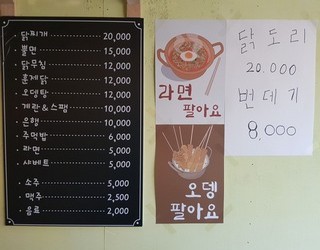 닭찌개 20,000
쫄면 15,000
닭무침 12,000
훈제닭 12,000
오뎅탕 12,000
계란&스팸 10,000
은행 10,000
주먹밥 6,000
라면 5,000
샤베트 5,000
소주 5,000
맥주 2,500
음료 2,000
라면
팔아요
오뎅
팔아요
닭도리
20.000
번데기
8.000